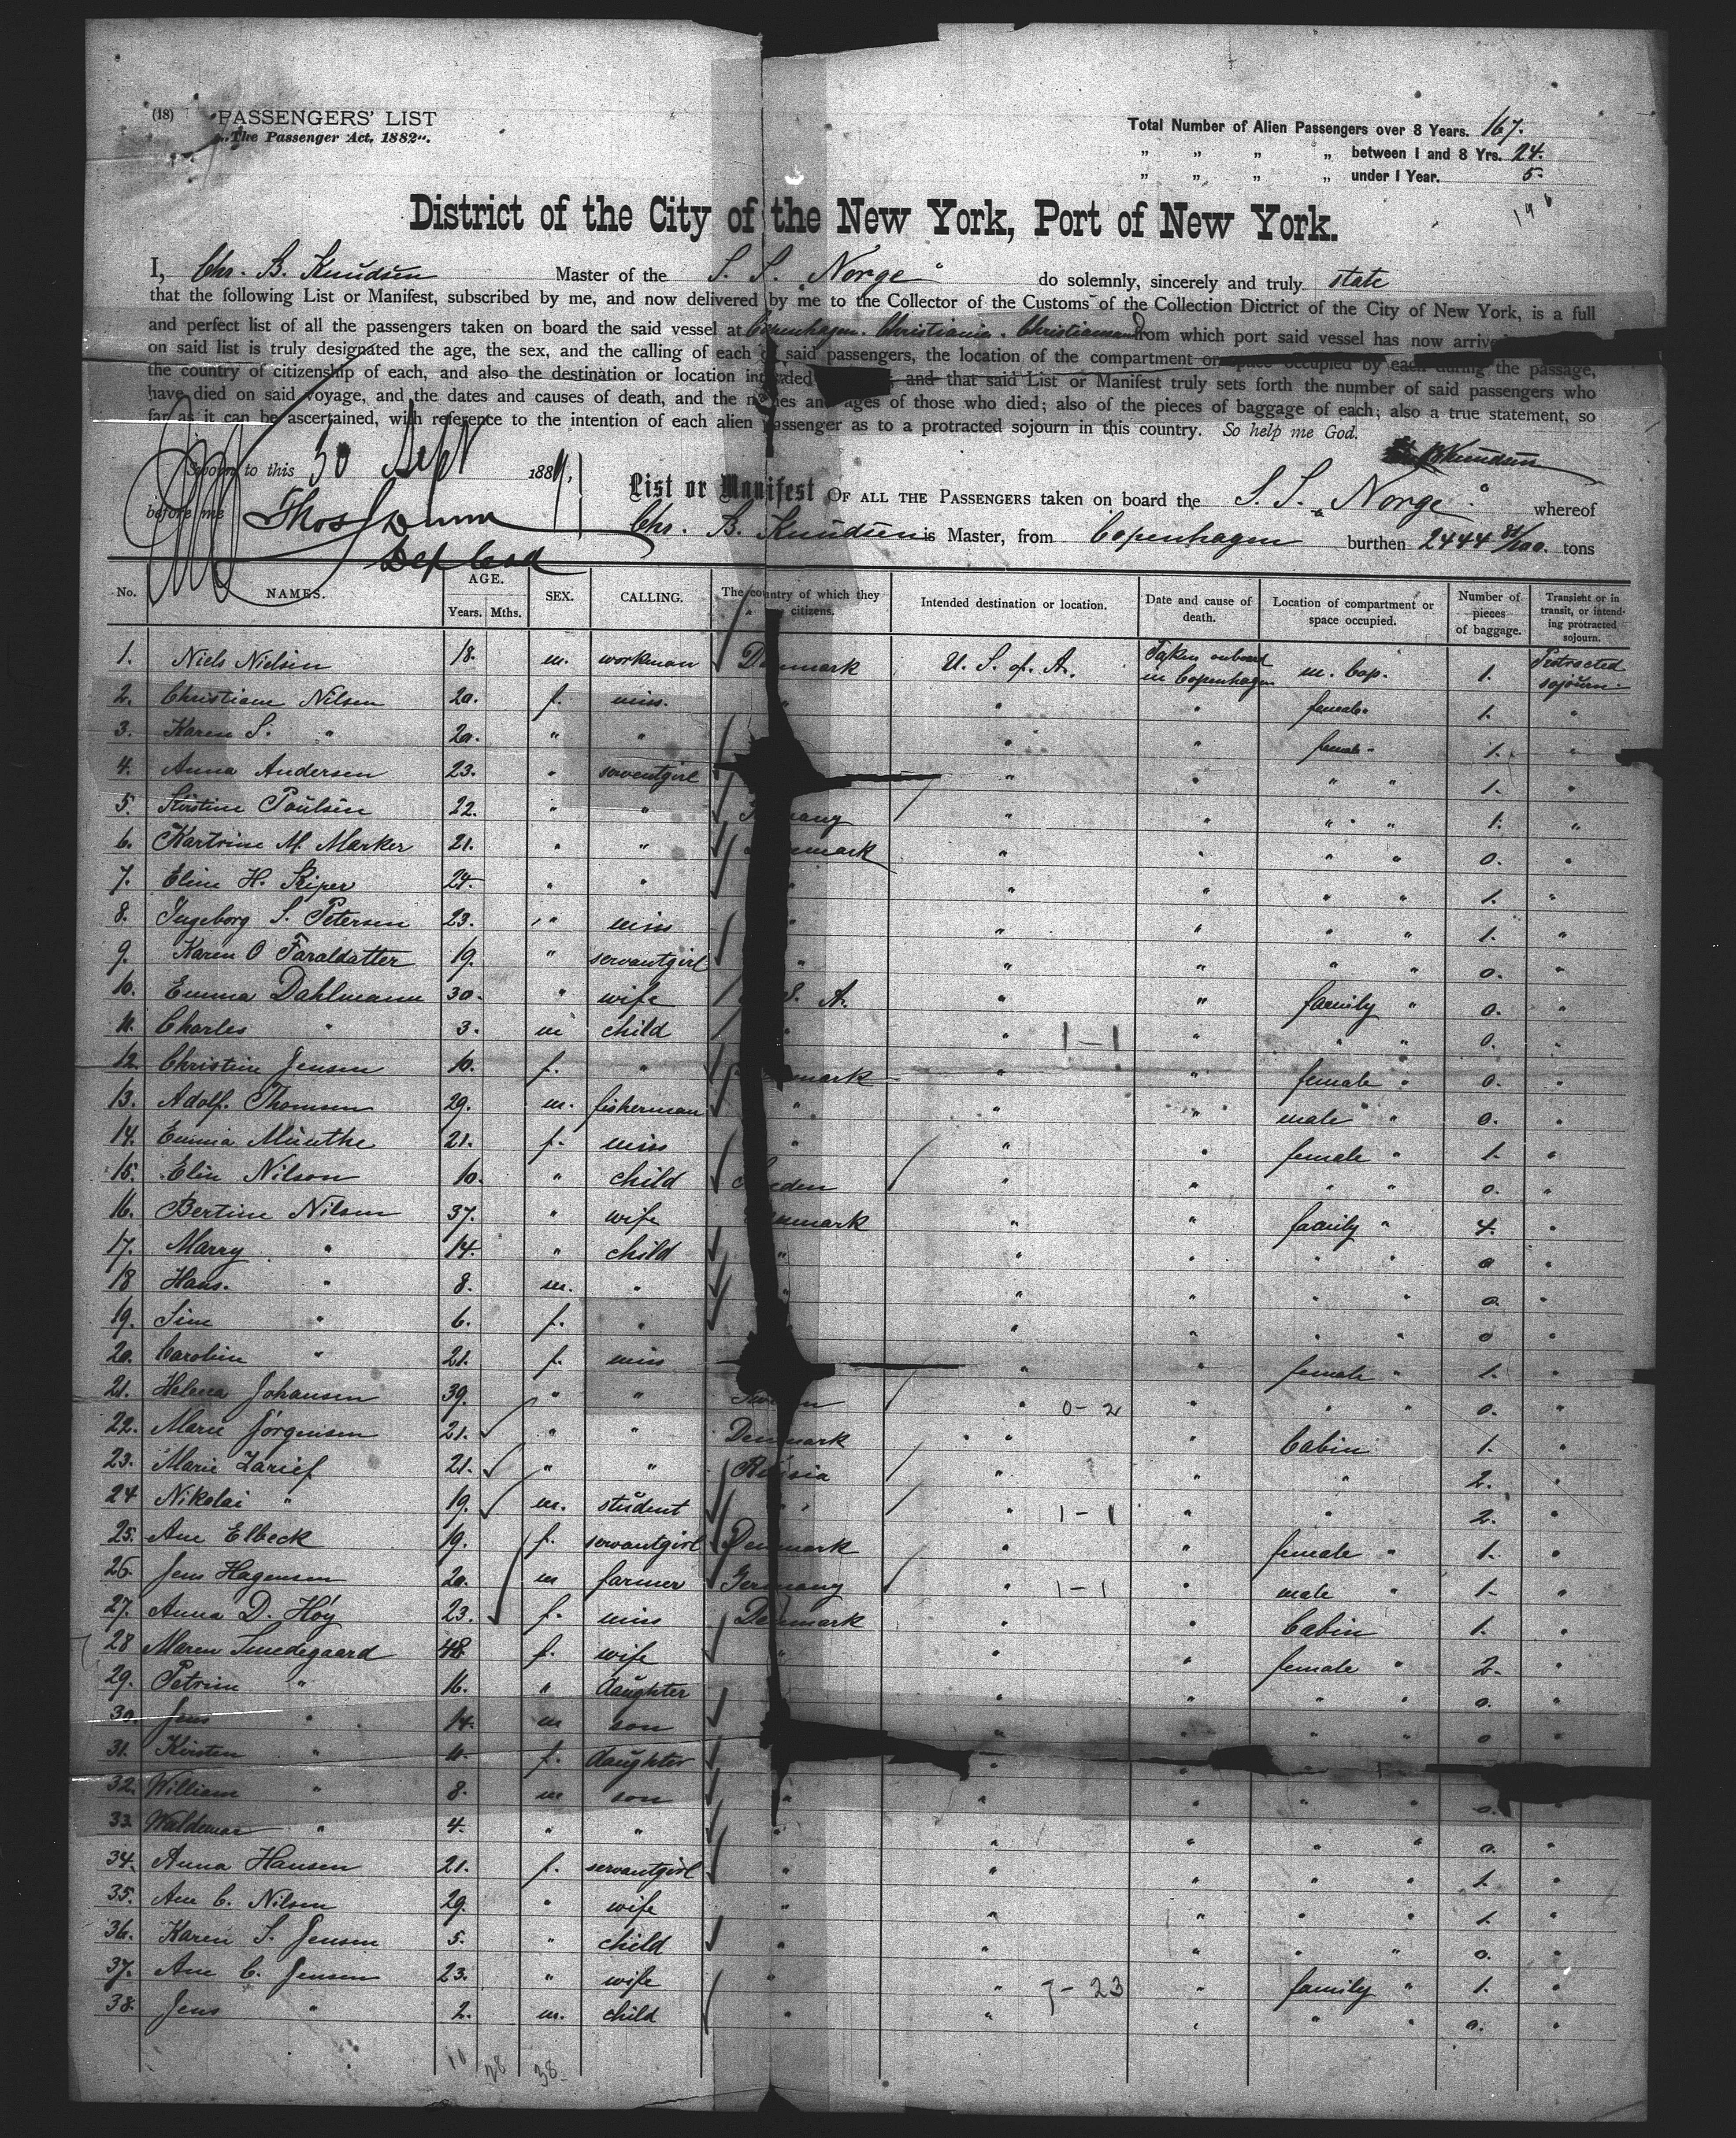 (18) PASSENGERS' LIST
„The Passenger Act, 1882".
Total Number of Alien Passengers over 8 Years. 167.
„ „ „ „ between 1 and 8 Yrs. 24.
„ „ „ „ under 1 Year. 5.
196
District of the City of the New York, Port of New York.
I, Chr. B. Knudsen Master of the S. S. „Norge" do solemnly, sincerely and truly state
that the following List or Manifest, subscribed by me, and now delivered by me to the Collector of the Customs of the Collection Dictrict of the City of New York, is a full
and perfect list of all the passengers taken on board the said vessel at Copenhagen. Christiania. Christiansand from which port said vessel has now arrived
on said list is truly designated the age, the sex, and the calling of each of said passengers, the location of the compartment or space occupied by each during the passage,
the country of citizenship of each, and also the destination or location intended and that said List or Manifest truly sets forth the number of said passengers who
have died on said voyage, and the dates and causes of death, and the names and ages of those who died; also of the pieces of baggage of each; also a true statement, so
far as it can be ascertained, with reference to the intention of each alien passenger as to a protracted sojourn in this country. So help me God.
Knudsen
Sworn to this 30 Sept 1889.
before me Thos Dunn
Dep
List or Manifest OF ALL THE PASSENGERS taken on board the S. S. „Norge" whereof
Chr. B. Knudsen is Master, from Copenhagen burthen 2444 tons
No. NAMES. AGE. Years. Mths. SEX. CALLING. The country of which they citizens. Intended destination or location. Date and cause of death. Location of compartment or space occupied. Number of pieces of baggage. Transient or in transit, or intending protracted sojourn.
1. Niels Nielsen 18. m. workman Denmark U. S. of. A. Taken onboard in Copenhagen m. Cop. 1. Protracted sojourn
2. Christiane Nilsen 20. f. miss. " " " female " 1. "
3. Karen S. " 20. " " " " female " 1. "
4. Anna Andersen 23. " servantgirl " " " " 1. "
5. Kirstine Poulsen 22. " " Germany " " " " 1. "
6. Kartrine M. Marker 21. " " Denmark " " " " 0. "
7. Eline H. Kiper 24. " " " " " " " 1. "
8. Ingeborg S. Petersen 23. " miss " " " " " 1. "
9. Karen O Taraldatter 19. " servantgirl " " " " " 0. "
10. Emma Dahlmann 30. " wife S. A. " " family " 0. "
11. Charles " 3. m child " " 1-1 " " " 0. "
12. Christine Jensen 10. f. " Denmark " " female " 0. "
13. Adolf. Thomsen 29. m. fisherman " " " male " 0. "
14. Emmia Münthe 21. f. miss " " " female " 1. "
15. Elin Nilson 10. " child Sweden " " " " 0. "
16. Bertine Nilsen 37. " wife Denmark " " family " 4. "
17. Marry " 14. " child " " " " " 0 "
18 Hans. " 8. m. " " " " " " 0. "
19. Sine " 6. f. " " " " " 0 "
20. Caroline " 21. f. miss " " female " 1. "
21. Helena Johansen 39. " " Sweden " 0-2 " " " 0. "
22. Marie Jörgensen 21. " " Denmark " " Cabin 1. "
23. Marie Zarief 21. " " Russia " " " 2. "
24 Nikolai " 19. m. student " " 1-1 " " 2. "
25. Ane Elbeck 19. f. servantgirl Denmark " " female " 1. "
26. Jens Hagensen 20. m farmer Germany " 1-1 " male " 1. "
27. Anna D. Höy 23. f. miss Denmark " " Cabin 1. "
28 Maren Smedegaard 48 f. wife " " " female " 2. "
29. Petrine " 16. " daughter " " " " 0. "
30. Jens " 14. m son " " " 0 "
31. Kirsten " 11. f. daughter "
32. William " 8. m son " " " " " 0. "
33. Waldemar " 4. " " " " " " " 0. "
34. Anna Hansen 21. f. servantgirl " " " " " 1. "
35. Ane C. Nilsen 29. " wife " " " " " 1. "
36. Karen S. Jensen 5. " child " " " " " 0. "
37. Ane C. Jensen 23. " wife " " 7-23 " family " 1. "
38. Jens " 2. m. child " " " " " 0. "
10 28 38